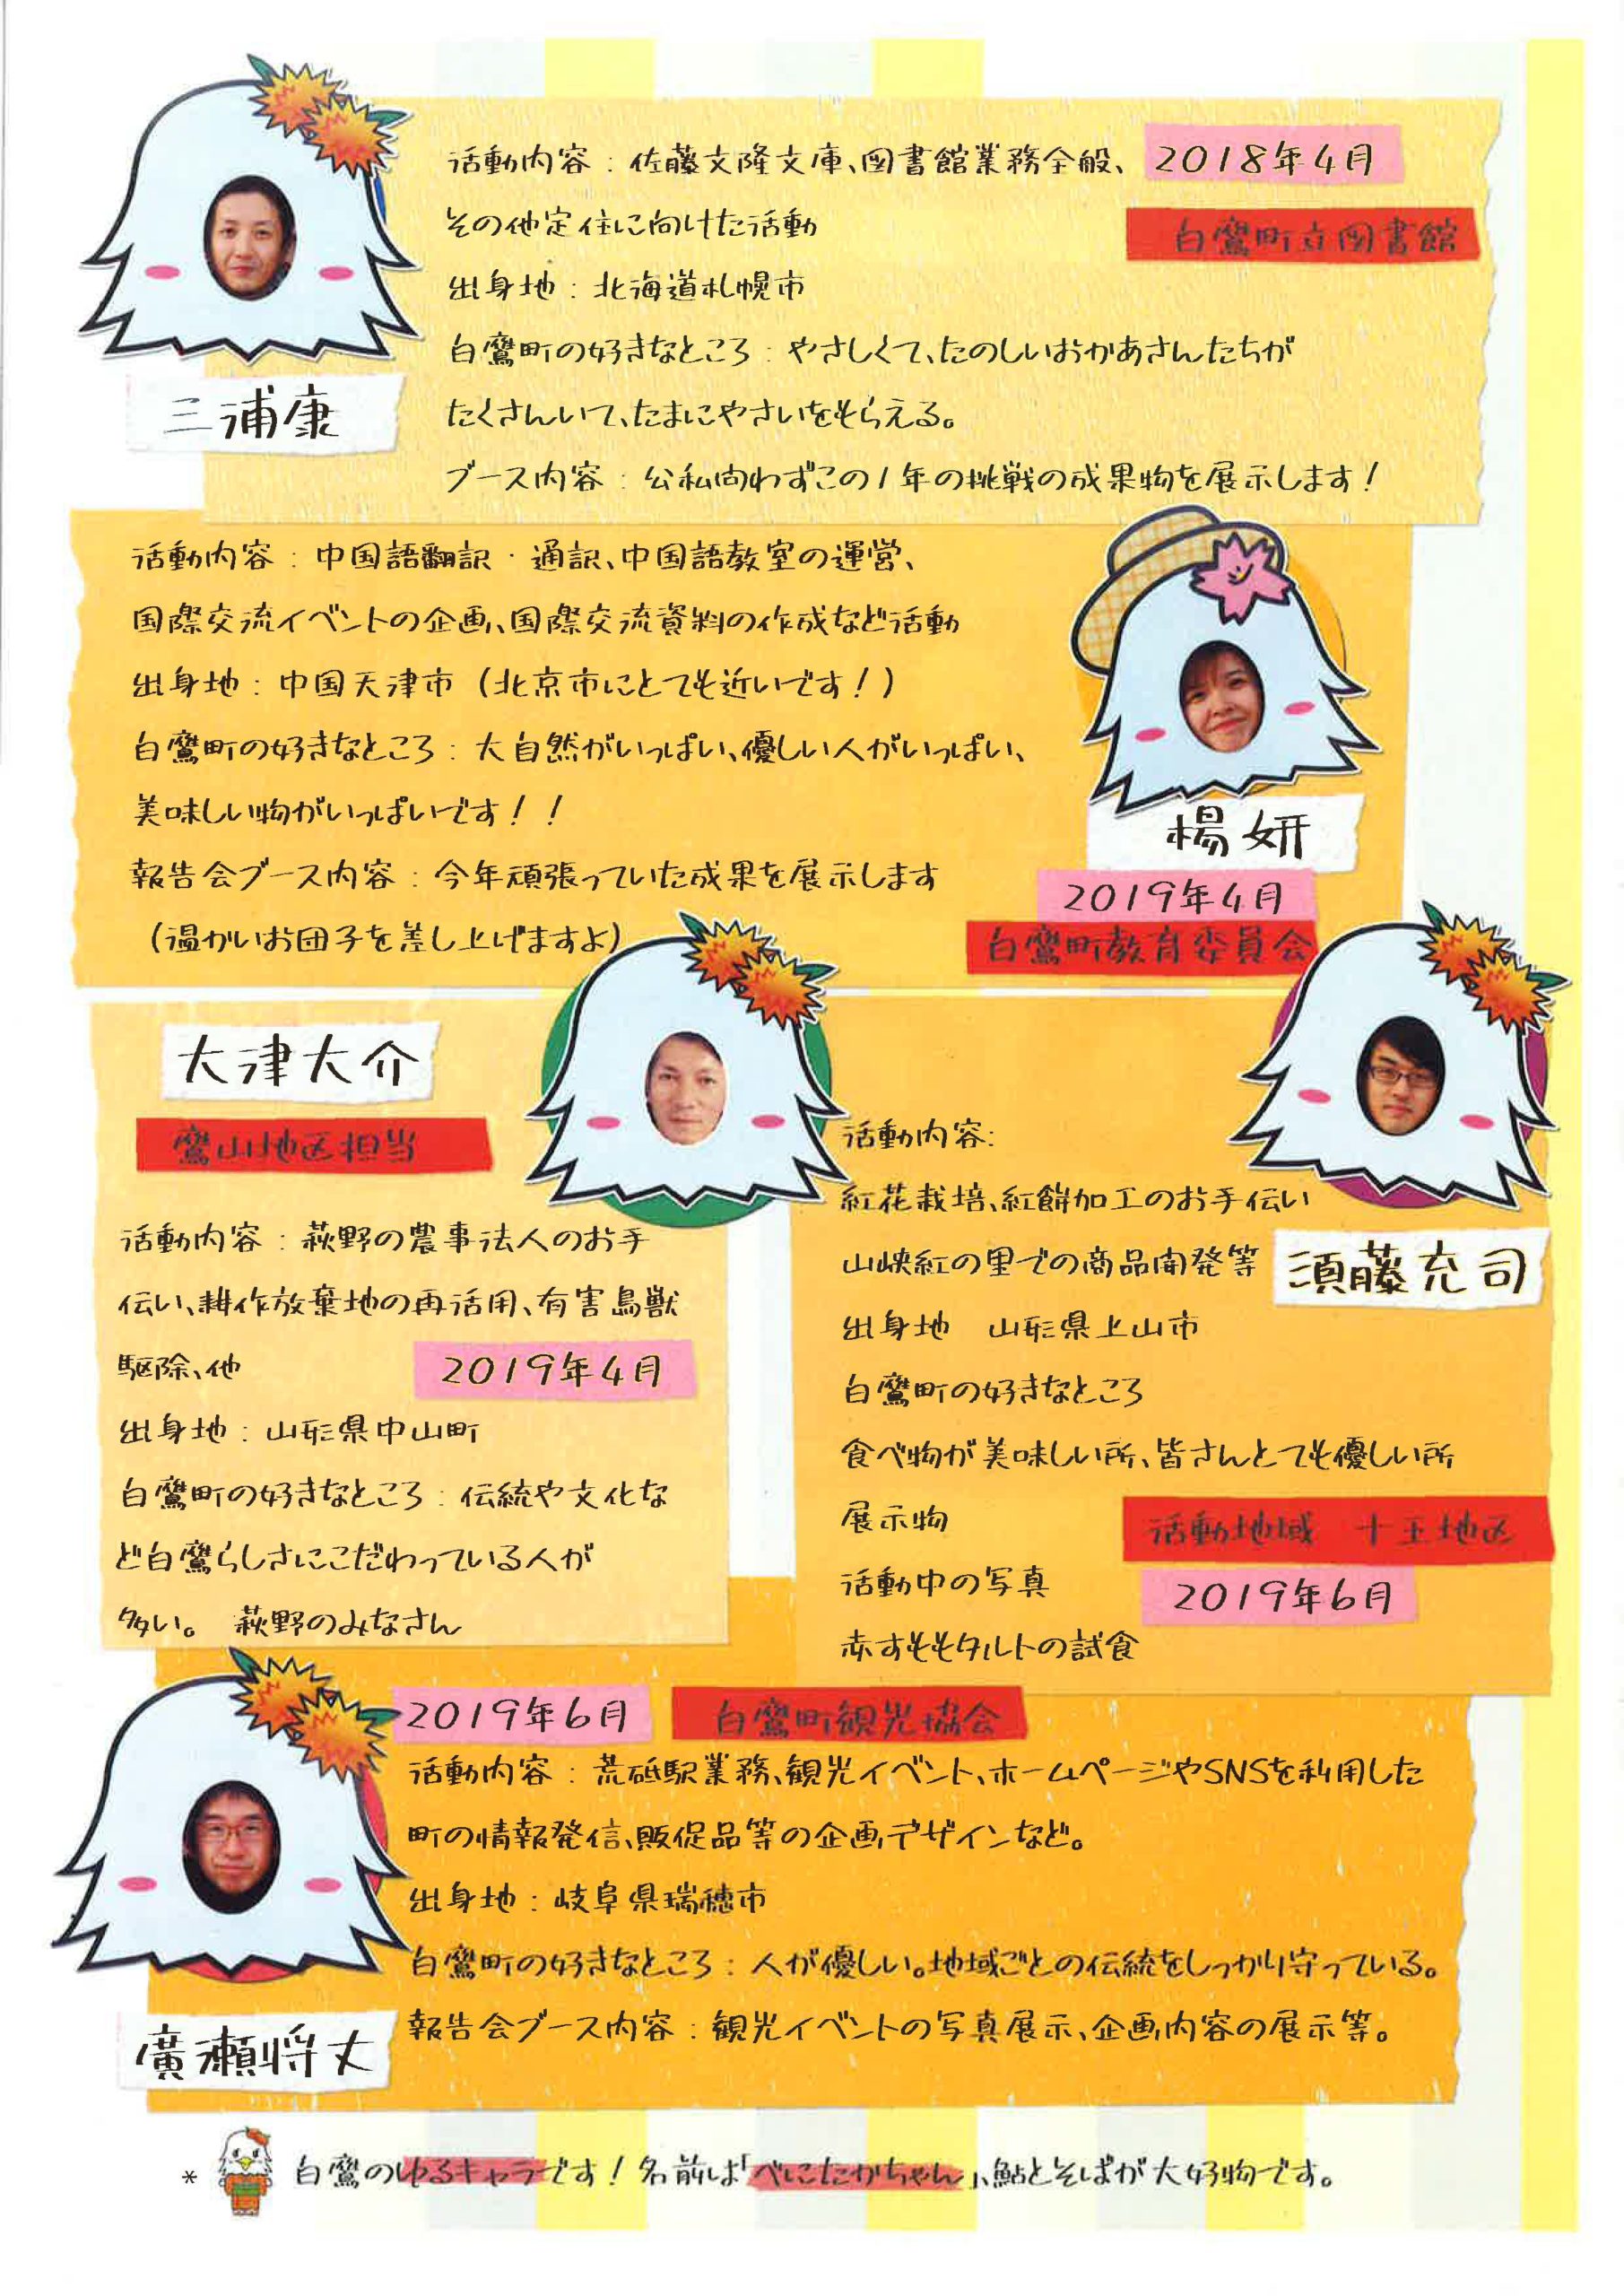 活動内容：佐藤文隆文庫、図書館業務全般、
2018年4月
白鷹町立図書館
その他定住に向けた活動
出身地：北海道札幌市
白鷹町の好きなところ：やさしくて、たのしいおかあさんたちが
たくさんいて、たまにやさいをもらえる。
ブース内容：公私問わずこの1年の挑戦の成果物を展示します！
三浦康
活動内容：中国語翻訳・通訳、中国語教室の運営、
国際交流イベントの企画、国際交流資料の作成など活動
出身地：中国天津市（北京市にとても近いです！）
白鷹町の好きなところ：大自然がいっぱい、優しい人がいっぱい、
美味しい物がいっぱいです！！
報告会ブース内容：今年頑張っていた成果を展示します
（温かいお団子を差し上げますよ）
楊妍
2019年4月
白鷹町教育委員会
大津大介
鷹山地区担当
活動内容：萩野の農事法人のお手
伝い、耕作放棄地の再活用、有害鳥獣
駆除、他
2019年4月
出身地：山形県中山町
白鷹町の好きなところ：伝統や文化な
ど白鷹らしさにこだわっている人が
多い。　萩野のみなさん
活動内容：
紅花栽培、紅餅加工のお手伝い
山峡紅の里での商品開発等
須藤充司
出身地　山形県上山市
白鷹町の好きなところ
食べ物が美味しい所、皆さんとても優しい所
展示物
活動地域　十王地区
活動中の写真
2019年6月
赤すももタルトの試食
2019年6月
白鷹町観光協会
活動内容：荒砥駅業務、観光イベント、ホームページやSNSを利用した
町の情報発信、販促品等の企画デザインなど。
出身地：岐阜県瑞穂市
白鷹町の好きなところ：人が優しい。地域ごとの伝統をしっかり守っている。
報告会ブース内容：観光イベントの写真展示、企画内容の展示等。
廣瀬将丈
* 白鷹のゆるキャラです！名前は「べにたかちゃん」、鮎とそばが大好物です。